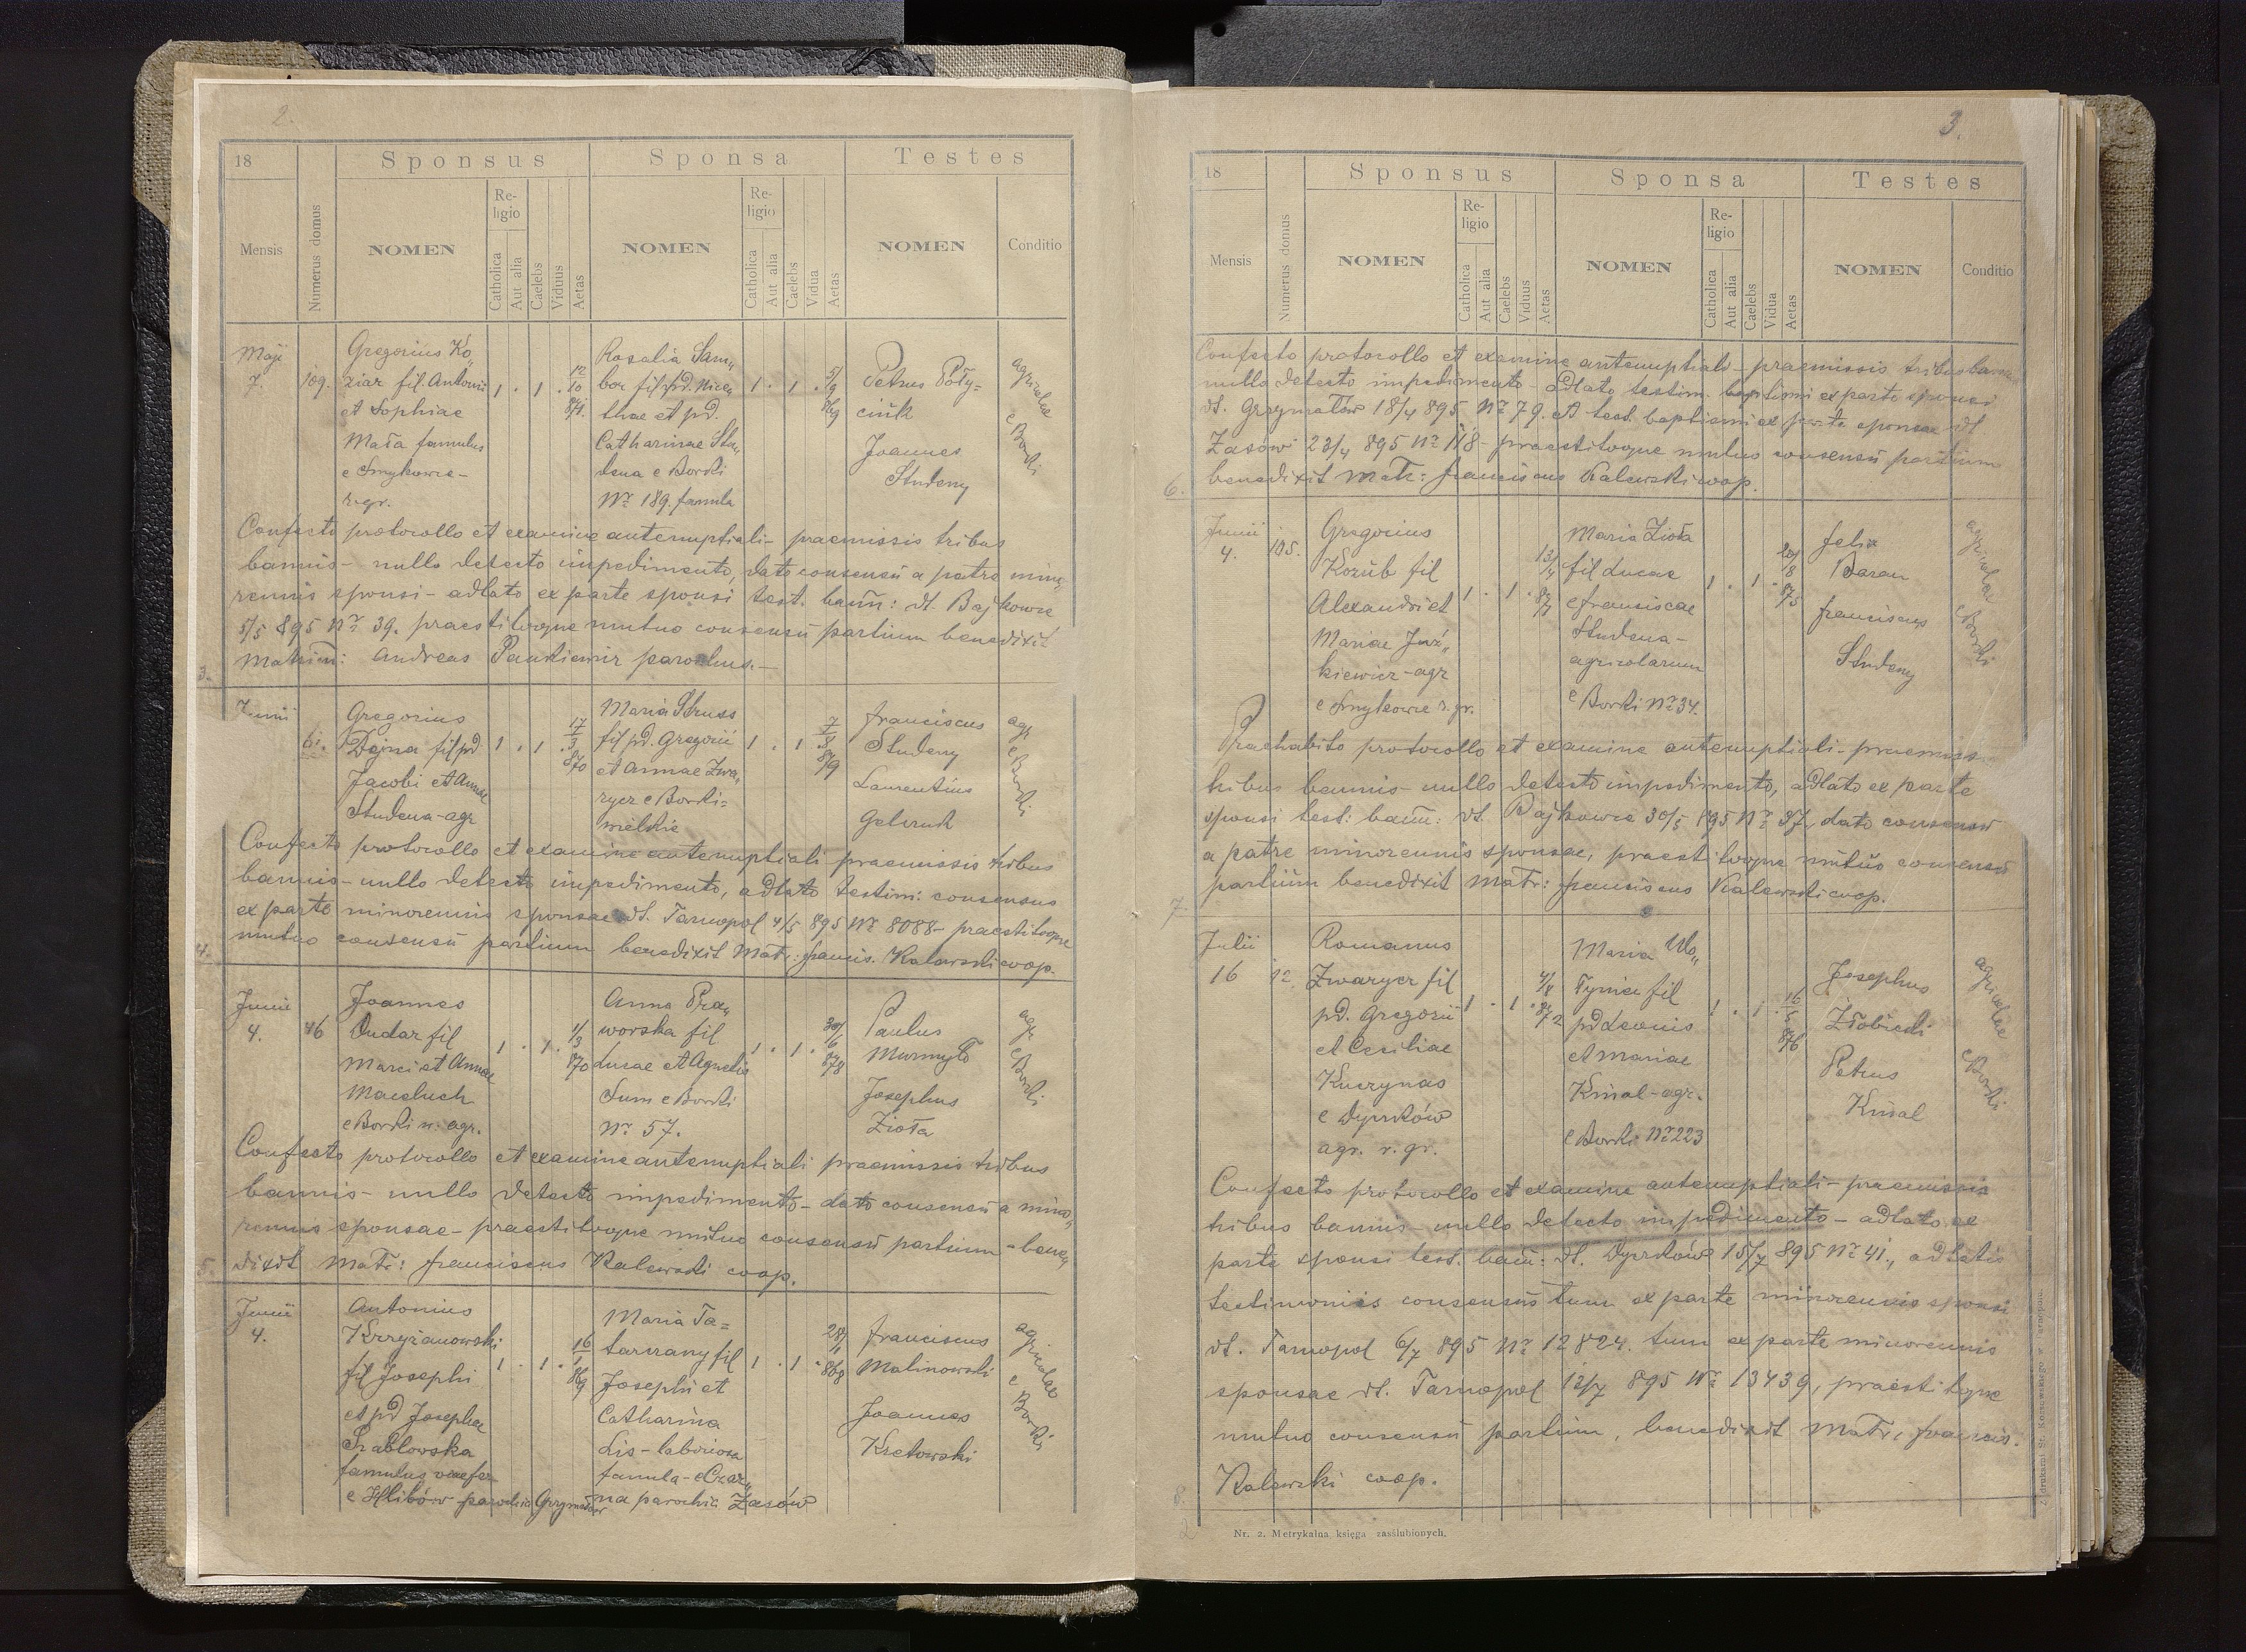 2.
18
Sponsus
Sponsa
Testes
Mensis
Numerus domus
NOMEN
Re-
ligio
Catholica
Aut alia
Caelebs
Viduus
Aetas
NOMEN
Re-
ligio
Catholica
Aut alia
Caelebs
Vidua
Aetas
NOMEN
Conditio
Maji
7.
109.
Gregorius Ko„
ziar fil. Antonii
et Sophiae
Mała famulus
e Smykowce-
r. gr.
1 · 1 ·
12
10
871.
Rosalia Sam„
bor fil pd. Nico„
laae et pd.
Catharinae Stu„
dena e Borki
Nr 189. famula
1 · 1 ·
5/9
869
Petrus Poły-
ciuk
Joannes
Studeny
agricolae
e Borki
Confecto protocollo et examine antenuptiali- praemissis tribus
bannis- nullo detecto impedimento, dato consensu a patre mino„
rennis sponsi- adlato ex parte sponsi test. bann: dt. Bajkowce
5/5 895 Nr. 39. praestitoque mutuo consensu partium benedixit
Matrim: Andreas Pankiewicz parochus.-
3.
Junii
61.
Gregorius
Dejna fil pd
Jacobi et Annae
Studena-agr
1 · 1 ·
17
3
870
Maria Struss
fil pd. Gregorii
et Annae Zwa„
rycz e Borki-
wielkie
1 · 1
7
8
879
Franciscus
Studeny
Laurentius
Geleruk
agr
e Borki
Confecto protocollo et examine antenuptiali praemissis tribus
bannis- nullo detecto impedimento, adlato testim: consensus
ex parte minorennis sponsae dt. Tarnopol 4/5 895 Nr 8088- praestitoque
mutuo consensu partium benedixit Matr: Francis. Kalewski coop.
4.
Junii
4.
46
Joannes
Dudar fil
Marci et Annae
Maceluch
e Borki w. agr.
1 · 1 ·
1/3
870
Anna Pra„
worska fil
Lucae et Agnetis
Sum e Borki
Nr 57.
1 · 1 ·
30/6
878
Paulus
Murmyło
Josephus
Zioła
agr
e Borki
Confecto protocollo et examine antenuptiali praemissis tribus
bannis- nullo detecto impedimento- dato consensu a mino„
rennis sponsae- praestitoque mutuo consensu partium - bene„
dixit Matr: Franciscus Kalewski coop.
5.
Junii
4.
Antonius
Krzyżanowski
fil Josephi
et pd Josephae
Szablowska
famulus
e Hlibów parochia Grzymałów
1 · 1 ·
16
1
869
Maria Ta-
tarzany fil
Josephi et
Catharina
Lis- laboriosa
famula- e Czar„
na parochia Zasów
1 · 1 ·
28/11
868
Franciscus
Malinowski
Joannes
Kretowski
agricolae
e Borki
3.
18
Sponsus
Sponsa
Testes
Mensis
Numerus domus
NOMEN
Re-
ligio
Catholica
Aut alia
Caelebs
Viduus
Aetas
NOMEN
Re-
ligio
Catholica
Aut alia
Caelebs
Vidua
Aetas
NOMEN
Conditio
Confecto protocollo et examine antenuptiali- praemissis tribus bannis
nullo detecto impedimento- adlato testim. baptismi ex parte sponsi
dt. Grzymałów 18/4 895 Nr 79. et test. baptismi ex parte sponsae dt
Zasów 23/4 895 Nr 118- praestitoque mutuo consensu partium
benedixit Matr: Franciscus Kalewski coop.
6.
Junii
4.
105.
Gregorius
Kozub fil
Alexandri et
Mariae Juź„
kiewicz-agr
e Smykowce r. gr.
1 · 1 ·
13/4
871
Maria Zioła
fil Lucae
e Franciscae
Studena-
agricolarum
e Borki Nr 34.
1 · 1 ·
20/8
875
Felix
Baran
Franciscus
Studeny
agricolae
e Borki
Praehabito protocollo et examine antenuptiali- praemiss
tribus bannis- nullo detecto impedimento, adlato ex parte
sponsi test: bann: dt. Bajkowce 30/5 895 Nr 37, dato consensu
a patre minorennis sponsae, praestitoque mutuo consensu
partium benedixit Matr: Franciscus Kalewski coop.
7.
Julii
16
12
Romanus
Zwarycz fil
pd. Gregorii
et Ceciliae
Kuczynas
e Dyczków
agr. r. gr.
1 · 1 ·
4/8
872
Maria Wo„
Tynier fil
pd Leonis
et Mariae
Kinal-agr.
e Borki Nr 223
1 · 1 ·
16
5
876
Josephus
Żłobicki
Petrus
Kinal
agricolae
e Borki
Confecto protocollo et examine antenuptiali- praemissis
tribus bannis- nullo detecto impedimento- adlato ex
parte sponsi test. bann: dt. Dyczków 15/7 895 Nr 41., adlatis
testimoniis consensus tum ex parte minorennis sponsi
dt. Tarnopol 6/7 895 Nr 12824. tum ex parte minorennis
sponsae dt. Tarnopol 12/7 895 Nr 13439, praestitoque
mutuo consensu partium, benedixit Matr: Francis.
Kalewski coop.
8.
2
Nr. 2. Metrykalna księga zaślubionych.
Z drukarni St. Kossowskiego w